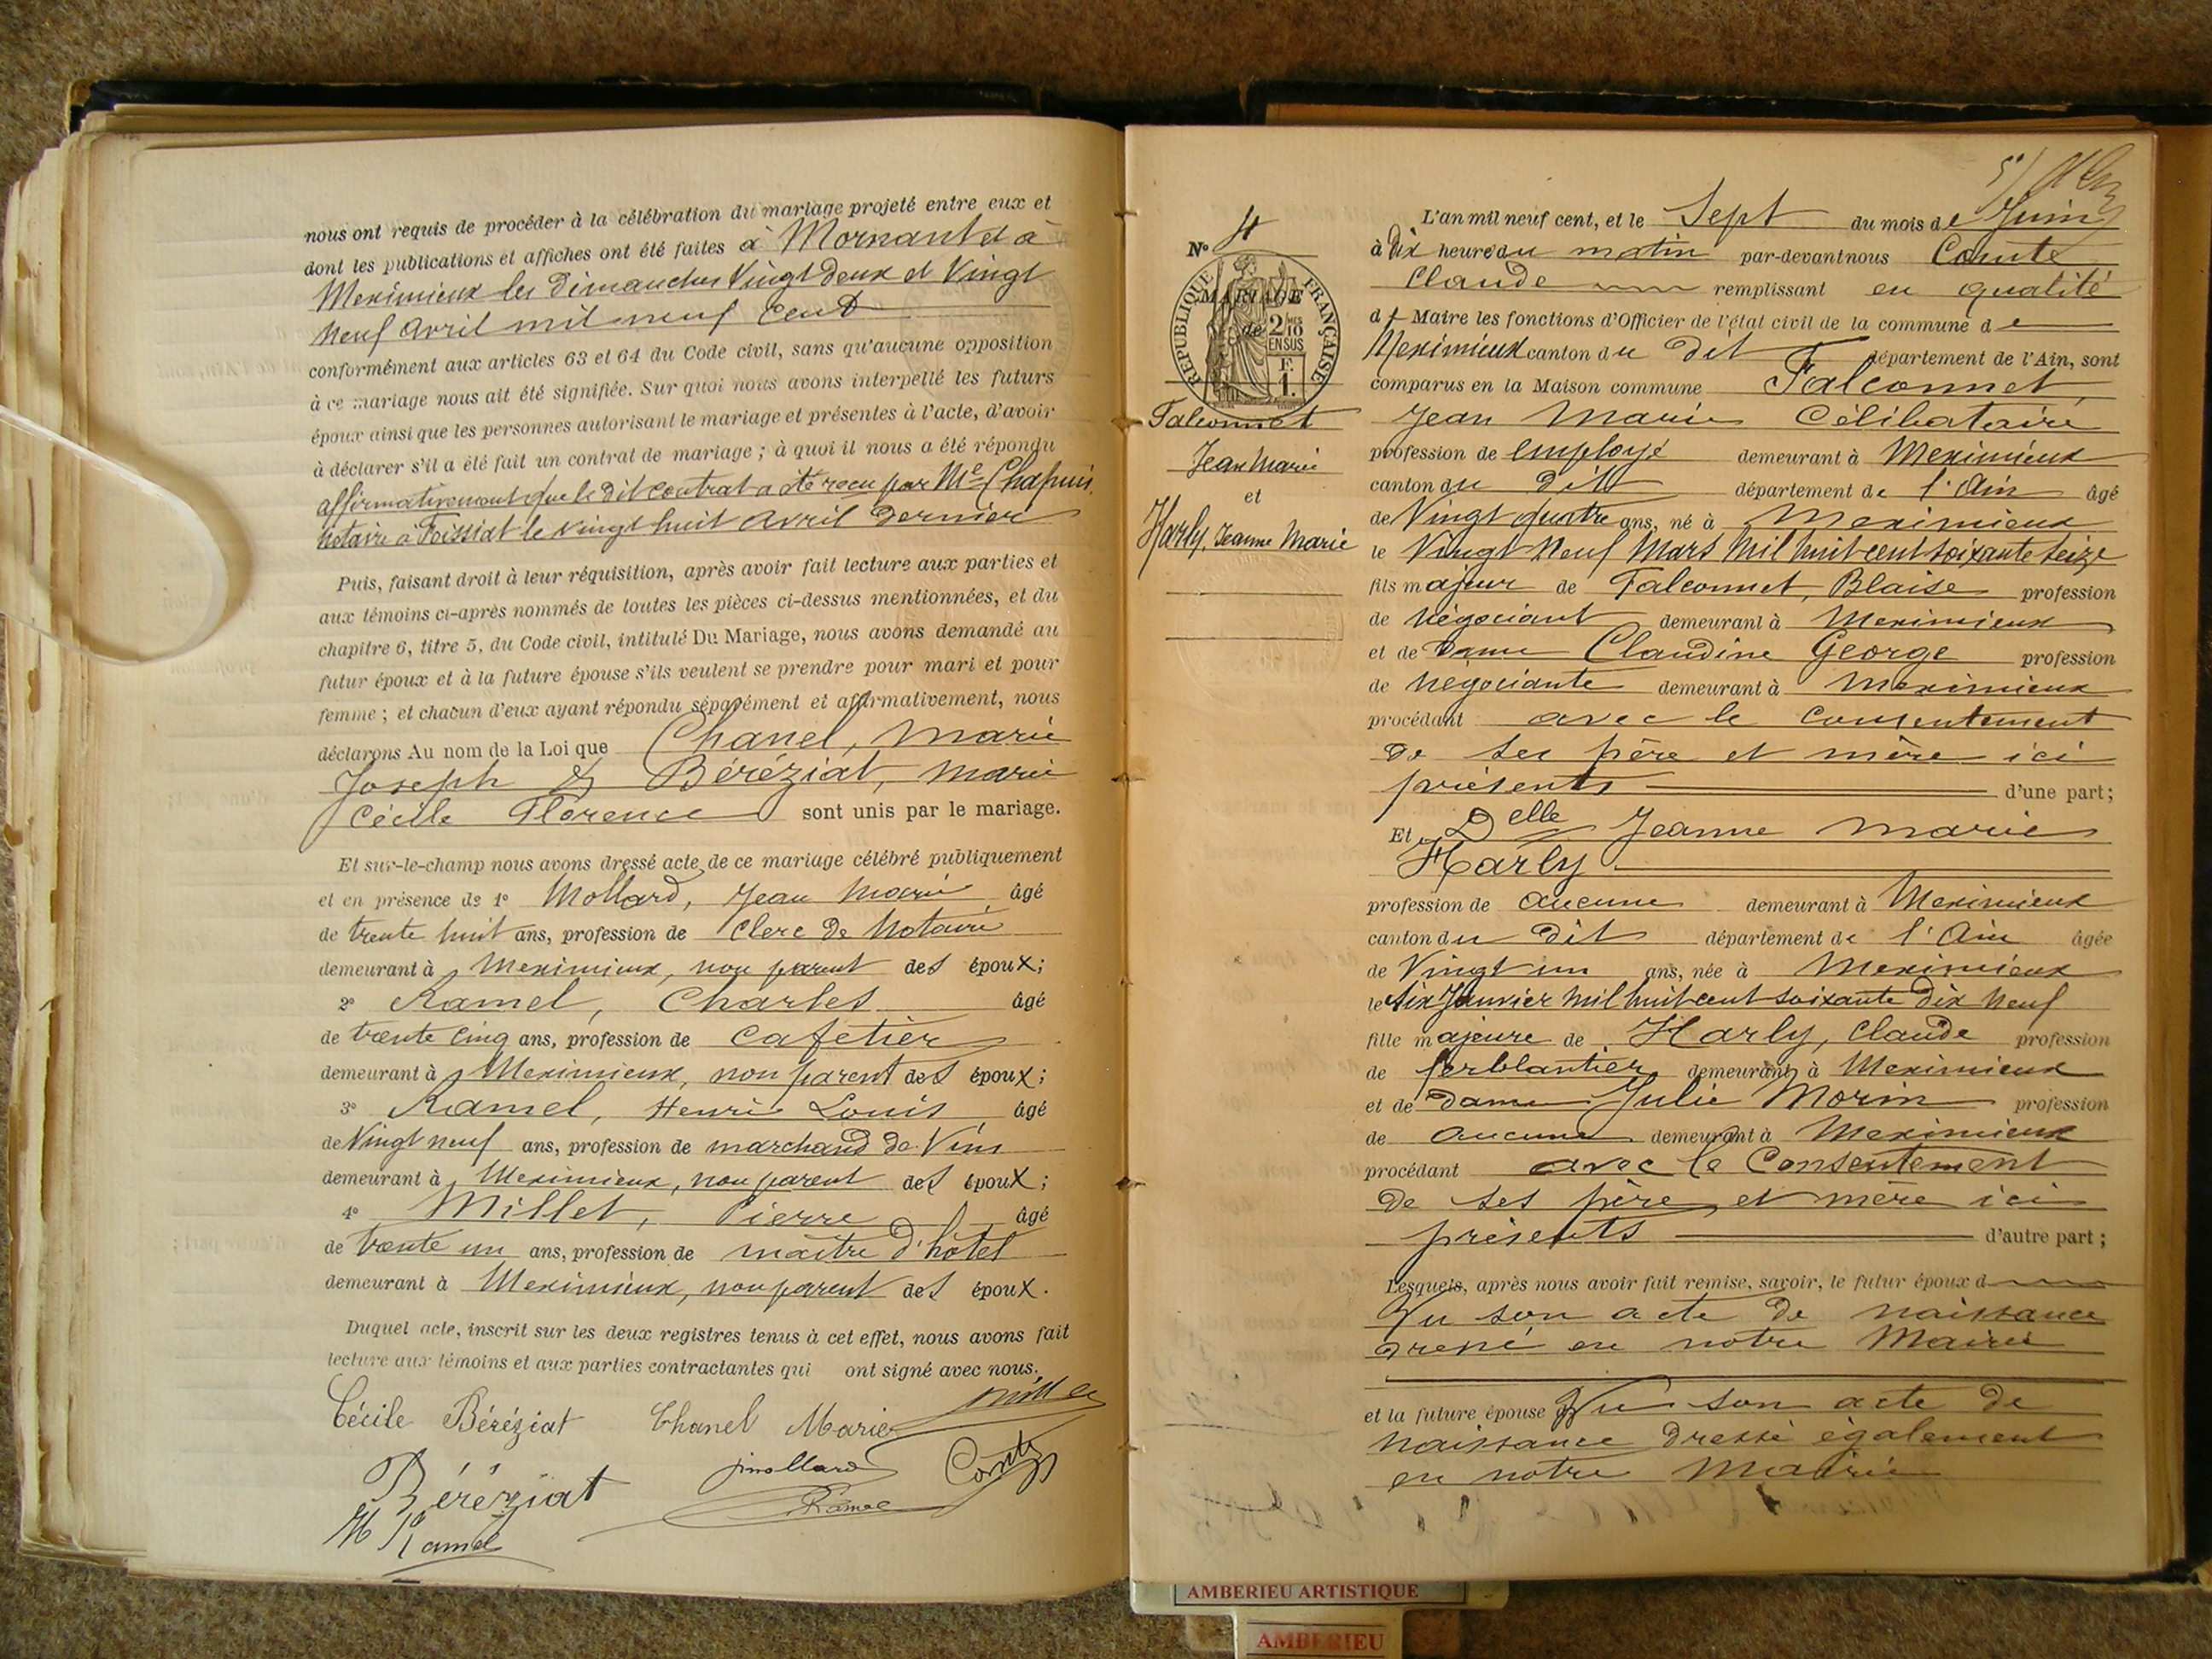 nous ont requis de procéder à la célébration du mariage projeté entre eux et
dont les publications et affiches ont été faites à Mornant et à
Meximieux les dimanches Vingt deux et Vingt
neuf avril mil neuf Cent
conformément aux articles 63 et 64 du Code civil, sans qu'aucune opposition
à ce mariage nous ait été signifiée. Sur quoi nous avons interpellé les futurs
époux ainsi que les personnes autorisant le mariage et présentes à l'acte, d'avoir
à déclarer s'il a été fait un contrat de mariage ; à quoi il nous a été répondu
affirmativement que le dit contrat a été reçu par Me Chapuis
notaire à Foissiat le vingt huit avril dernier
Puis, faisant droit à leur réquisition, après avoir fait lecture aux parties et
aux témoins ci-après nommés de toutes les pièces ci-dessus mentionnées, et du
chapitre 6, titre 5, du Code civil, intitulé Du Mariage, nous avons demandé au
futur époux et à la future épouse s'ils veulent se prendre pour mari et pour
femme ; et chacun d'eux ayant répondu séparément et affirmativement, nous
déclarons Au nom de la Loi que Chanel, Marie
Joseph & Béréziat, Marie
Cécile Florence sont unis par le mariage.
Et sur-le-champ nous avons dressé acte de ce mariage célébré publiquement
et en présence de 1° Mollard, Jean Marie âgé
de trente huit ans, profession de Clerc de Notaire
demeurant à Meximieux, non parent des époux ;
2° Ramel, Charles âgé
de trente cinq ans, profession de cafetier
demeurant à Meximieux, non parent des époux ;
3° Ramel, Henri Louis âgé
de Vingt neuf ans, profession de marchand de Vins
demeurant à Meximieux, non parent des époux ;
4° Millet, Pierre âgé
de trente un ans, profession de maître d'hôtel
demeurant à Meximieux, non parent des époux.
Duquel acte, inscrit sur les deux registres tenus à cet effet, nous avons fait
lecture aux témoins et aux parties contractantes qui ont signé avec nous.
Millet
Cécile Béréziat Chanel Marie
Béréziat jmollard Comte
H Ramel Ramel
N° 4
RÉPUBLIQUE FRANÇAISE
MARIAGE
de 2/10 EN SUS
F. 1.
Falconnet
Jean Marie
et
Harly, Jeanne Marie
L'an mil neuf cent, et le Sept du mois de Juin
à Dix heures du matin par-devant nous Comte
Claude remplissant en qualité
de Maire les fonctions d'Officier de l'état civil de la commune de
Meximieux canton du dit département de l'Ain, sont
comparus en la Maison commune Falconnet,
Jean Marie Célibataire
profession de employé demeurant à Meximieux
canton du dit département de l'Ain âgé
de Vingt quatre ans, né à Meximieux
le Vingt Neuf Mars Mil huit cent soixante seize
fils majeur de Falconnet, Blaise profession
de négociant demeurant à Meximieux
et de Dame Claudine George profession
de négociante demeurant à Meximieux
procédant avec le consentement
de ses père et mère ici
présents d'une part ;
Et Delle Jeanne Marie
Harly
profession de aucune demeurant à Meximieux
canton du dit département de l'Ain âgée
de Vingt un ans, née à Meximieux
le six Janvier Mil huit cent soixante Dix Neuf
fille majeure de Harly, Claude profession
de ferblantier demeurant à Meximieux
et de Dame Julie Morin profession
de aucune demeurant à Meximieux
procédant avec le Consentement
de ses père et mère ici
présents d'autre part ;
Lesquels, après nous avoir fait remise, savoir, le futur époux d
Vu son acte de naissance
dressé en notre Mairie
et la future épouse d Vu son acte de
naissance dressé également
en notre Mairie
AMBERIEU ARTISTIQUE
AMBERIEU